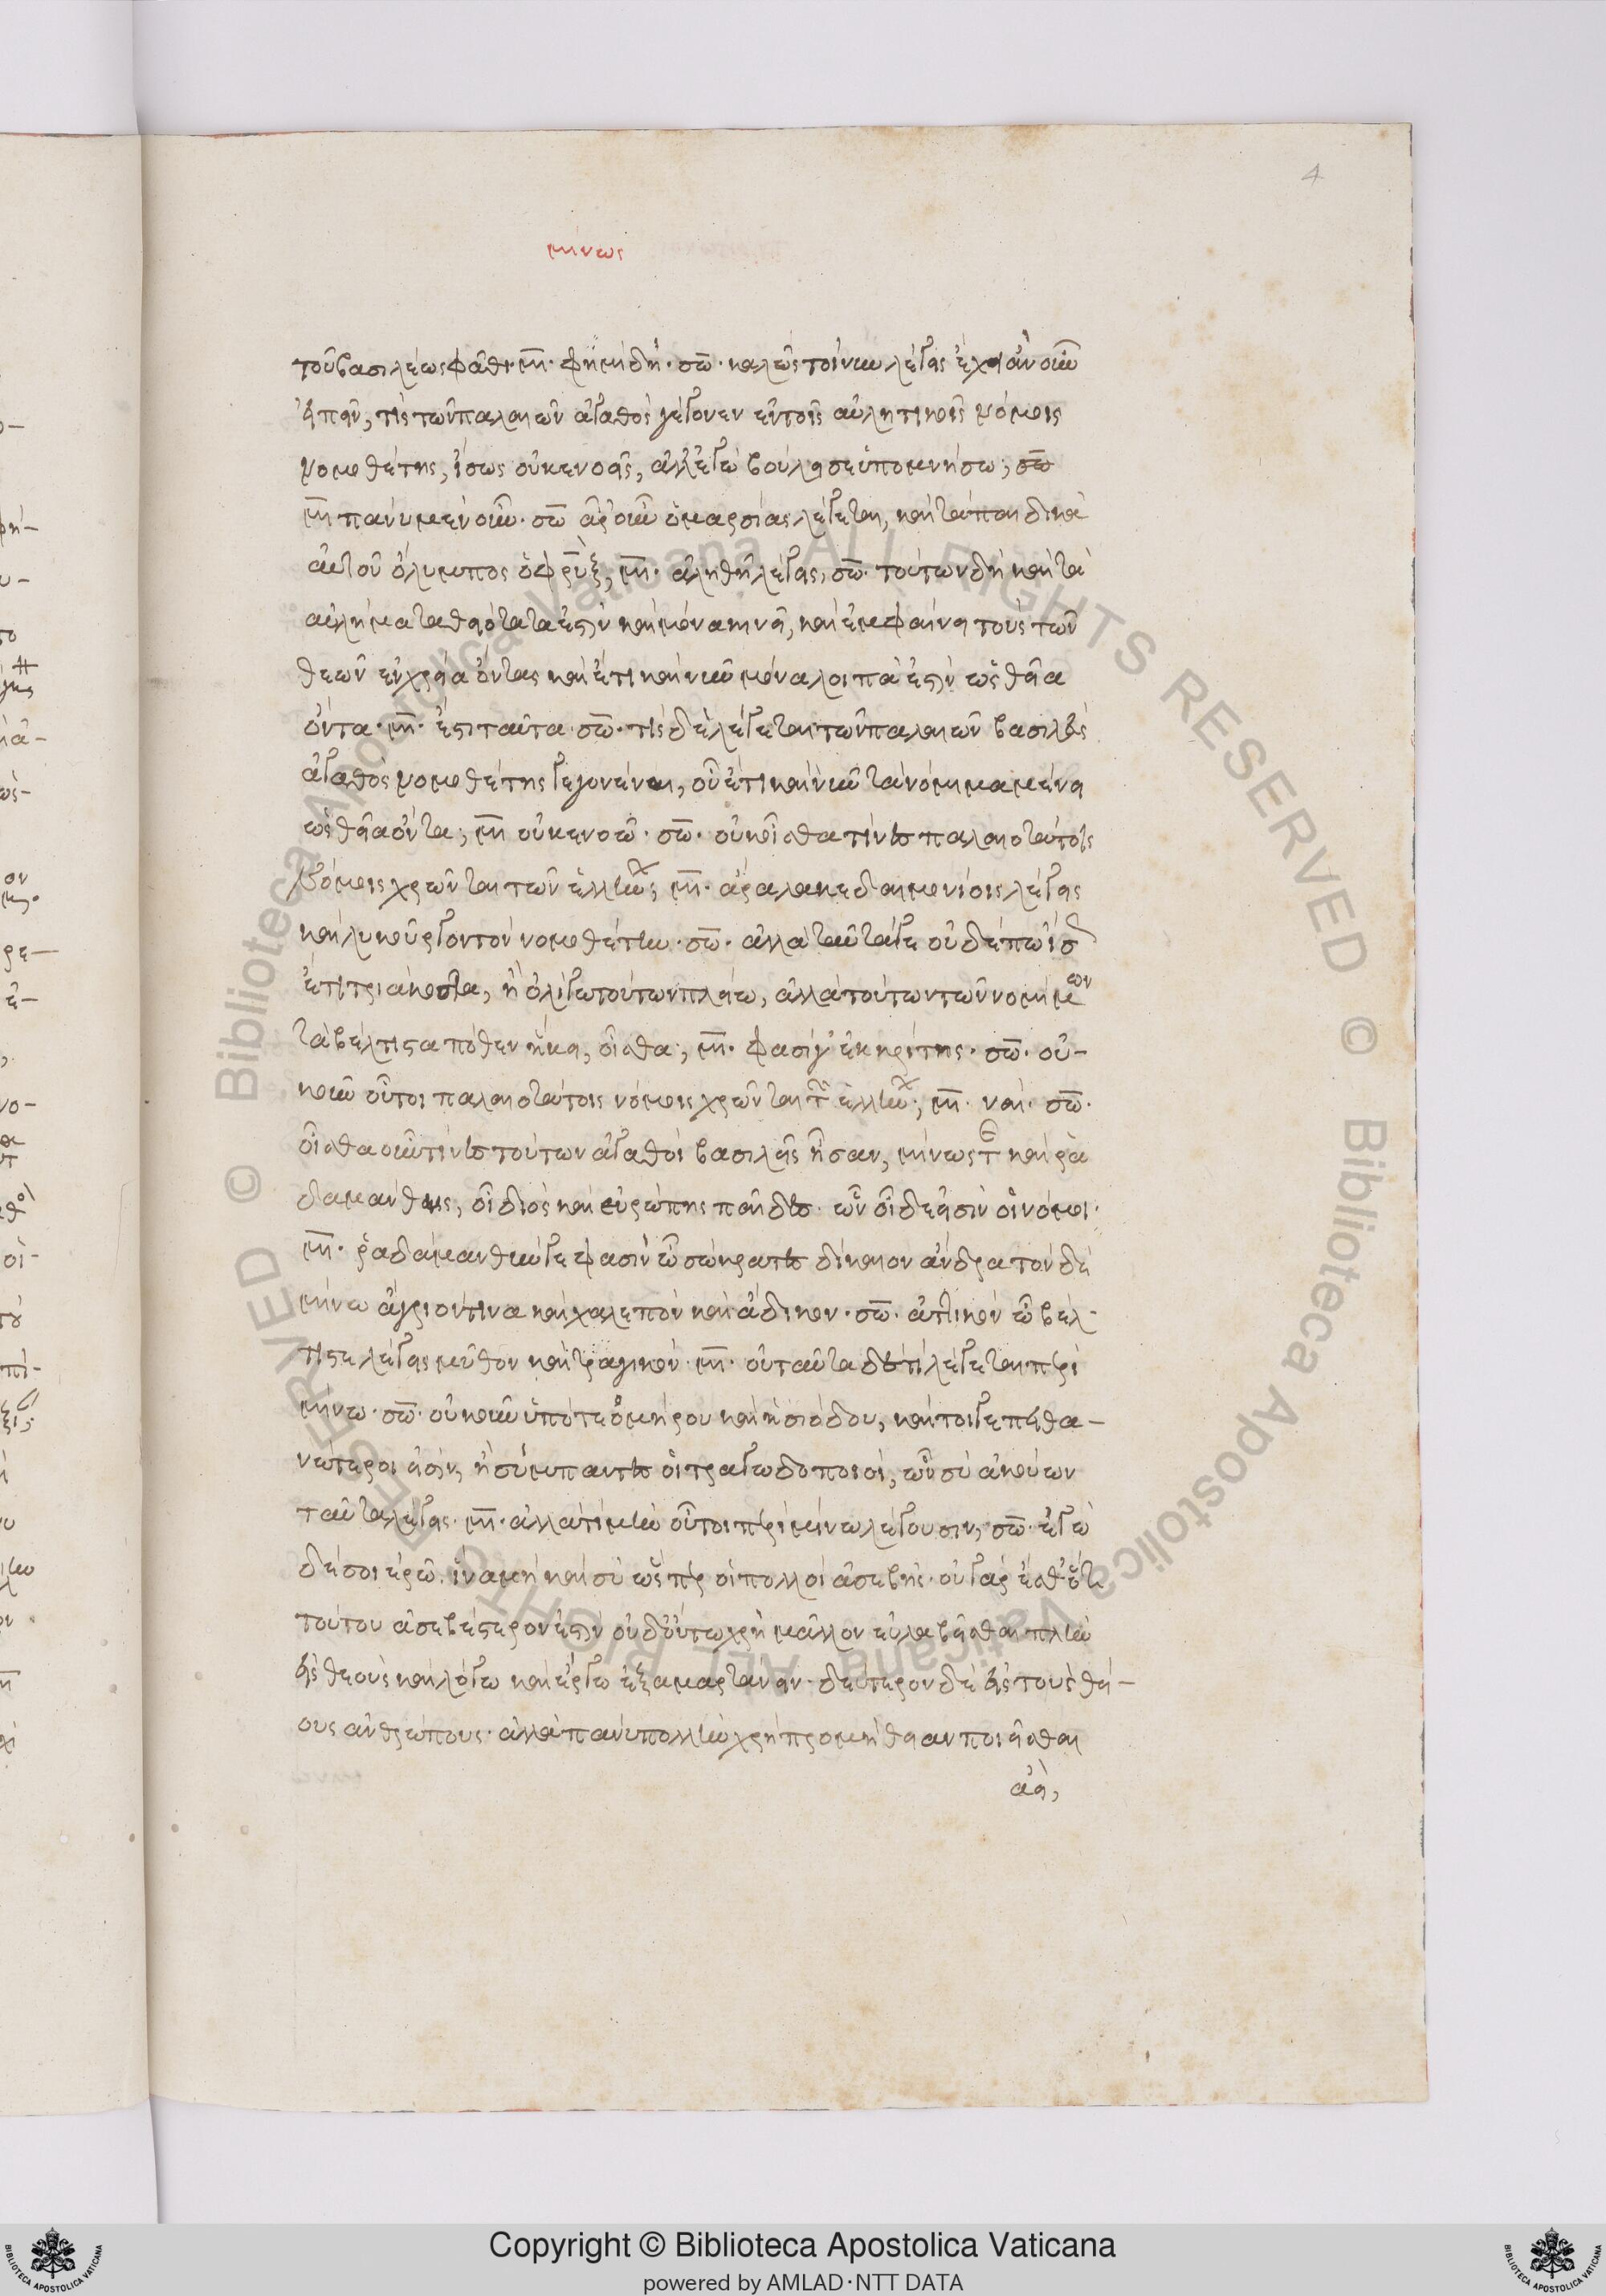 4
μίνως
τοῦ βασιλέως φάθι. μι. φημὶ δή. σω. καλῶς τοίνυν λέγεις ἔχοις ἂν οὖν
εἰπεῖν, τίς τῶν παλαιῶν ἀγαθὸς γέγονεν ἐν τοῖς αὐλητικοῖς νόμοις
νομοθέτης, ἴσως οὐκ ἐννοεῖς, ἀλλ' ἐγὼ βούλει σε ὑπομνήσω; σω
μι πάνυ μὲν οὖν. σω ἆρ' οὖν ὁ μαρσίας λέγεται, καὶ τὰ παιδικὰ
αὐτοῦ ὄλυμπος ὁ φρύξ, μι. ἀληθῆ λέγεις, σω. τούτων δὴ καὶ τὰ
αὐλήματα θειότατα ἐστὶν καὶ μόνα κινεῖ, καὶ ἐμφαίνει τοὺς τῶν
θεῶν ἐν χρείᾳ ὄντας καὶ ἔτι καὶ νῦν μόνα λοιπὰ ἐστὶν ὡς θεῖα
ὄντα. μι. ἔστι ταῦτα. σω. τίς δὲ λέγεται τῶν παλαιῶν βασιλέων
ἀγαθὸς νομοθέτης γεγονέναι, οὗ ἔτι καὶ νῦν τὰ νόμιμα μένει
ὡς θεῖα ὄντα; μι οὐκ ἐννοῶ. σω. οὐκ οἶσθα τίνες παλαιοτάτοις
νόμοις χρῶνται τῶν ἑλλήνων; μι. ἆρα λακεδαιμονίοις λέγεις
καὶ λυκοῦργον τὸν νομοθέτην. σω. ἀλλὰ ταῦτά γε οὐδέπω ἴσως
ἔτη τριακόσια, ἢ ὀλίγω τούτων πλείω, ἀλλὰ τούτων τῶν νομίμων
τὰ βέλτιστα πόθεν ἥκει, οἶσθα; μι. φασί γ' ἐκ κρήτης. σω. οὐ-
κοῦν οὗτοι παλαιοτάτοις νόμοις χρῶνται τῶν ἑλλήνων; μι. ναί. σω.
οἶσθα οὖν τίνες τούτων ἀγαθοὶ βασιλεῖς ἦσαν, μίνως τ καὶ ῥα
δαμάνθυς, οἱ διὸς καὶ εὐρώπης παῖδες. ὧν οἵδε εἰσὶν οἱ νόμοι.
μι. ῥαδάμανθύν γε φασὶν ὦ σώκρατες δίκαιον ἄνδρα τὸν δὲ
μίνω ἄγριόν τινα καὶ χαλεπὸν καὶ ἄδικον. σω. ἀττικὸν ὦ βέλ-
τιστε λέγεις μῦθον καὶ τραγικόν. μι. οὐ ταῦτα δέ τι λέγεται περὶ
μίνω. σω. οὔκουν ὑπό τε ὁμήρου καὶ ἡσιόδου, καί τοι γε πιθα-
νώτεροι εἰσίν, ἢ σύμπαντες οἱ τραγωδοποιοί, ὧν σὺ ἀκούων
ταῦτα λέγεις. μι. ἀλλὰ τί μὴν οὗτοι περὶ μίνω λέγουσιν, σω. ἐγὼ
δέ σοι ἐρῶ. ἵνα μὴ καὶ σὺ ὥσπερ οἱ πολλοὶ ἀσεβῇς. οὐ γὰρ ἔσθ' ὅτι
τούτου ἀσεβέστερον ἐστὶν οὐδ' οὕτω χρὴ μᾶλλον εὐλαβεῖσθαι πλὴν
εἰς θεοὺς καὶ λόγω καὶ ἔργω ἐξαμαρτάνειν. δεύτερον δὲ εἰς τοὺς θεί-
ους ἀνθρώπους. ἀλλὰ πάνυ πολλὴν χρὴ προμήθειαν ποιεῖσθαι
ἀεὶ,